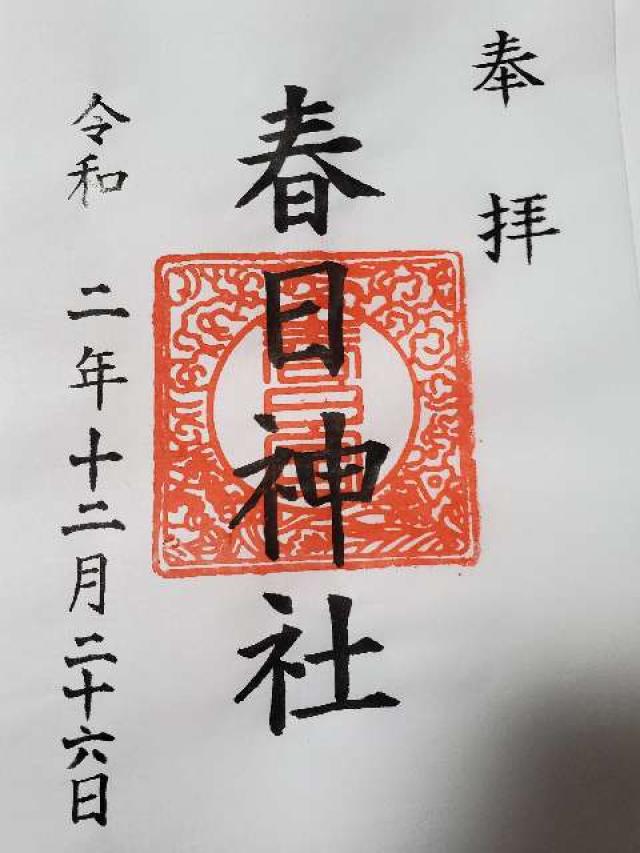 奉拝
春日神社
令和 二年十二月二十六日